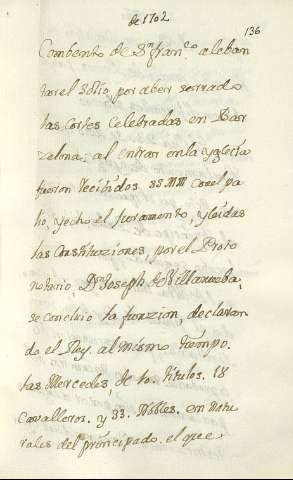 de 1702
136
Combento de Sn. fran.co a leban
tar el Solio, por aber serrado
las Cortes Celebradas en Bar
zelona; al entrar en la yglesia
fueron recibidos SS MM con el pa
lio, y echo el Juramento, y leidas
las Constituziones, por el Proto
notario Dn. Joseph de Villanueba,
se concluio la funzion, declaran
do el Rey al mismo tiempo.
las Mercedes, de 10. titulos. 18
Cavalleros. y 33. Nobles. en Natu
rales del prinsipado. el que